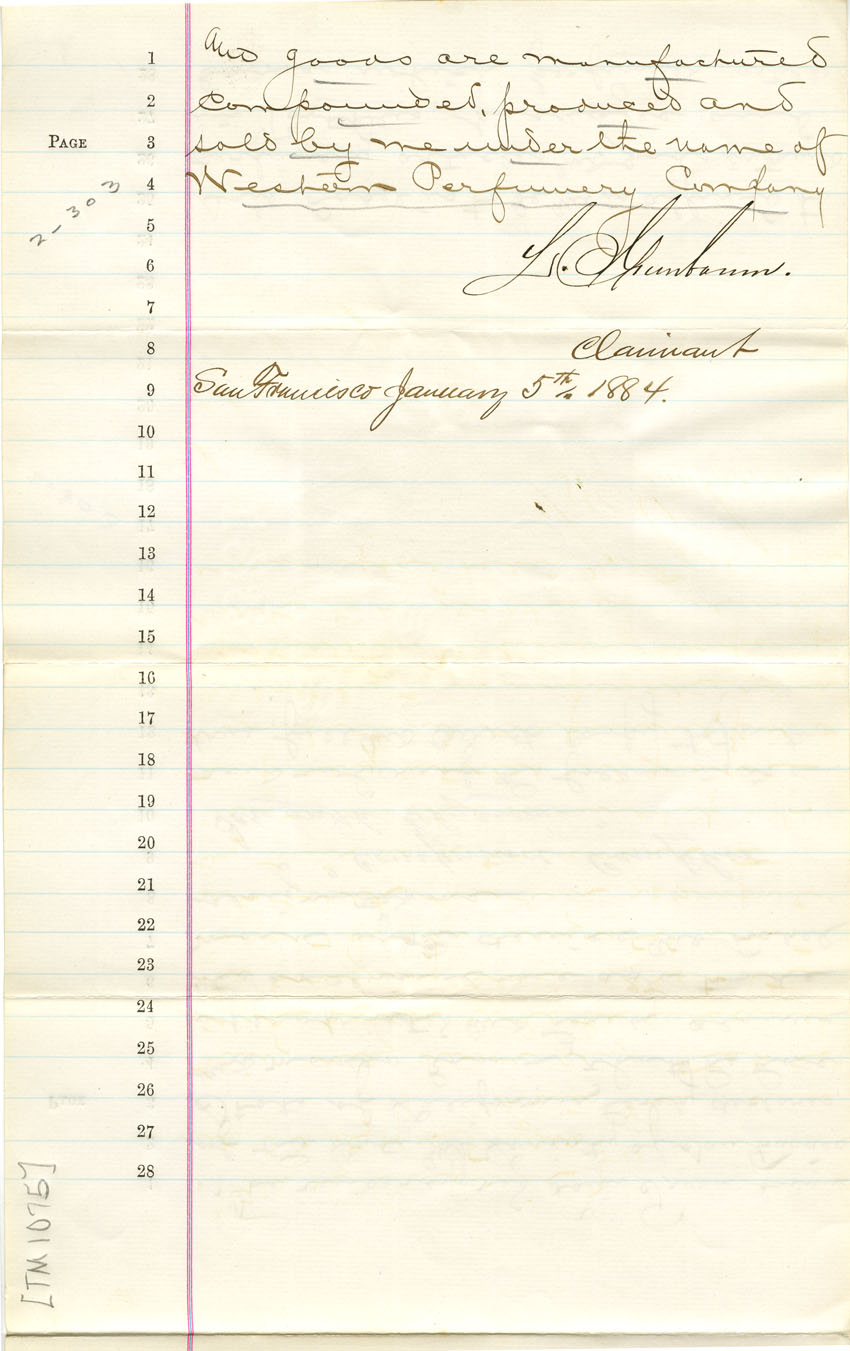 and goods are manufactured
compounded, produced and
sold by me under the name of
Western Perfumery Company
L.
Claimant
San Francisco January 5th 1884.
PAGE
2-303
1
2
3
4
5
6
7
8
9
10
11
12
13
14
15
16
17
18
19
20
21
22
23
24
25
26
27
28
[TM 1075]